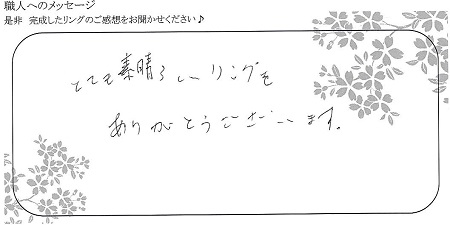 職人へのメッセージ
是非 完成したリングのご感想をお聞かせください♪
とても素晴らしいリングを
ありがとうございます。